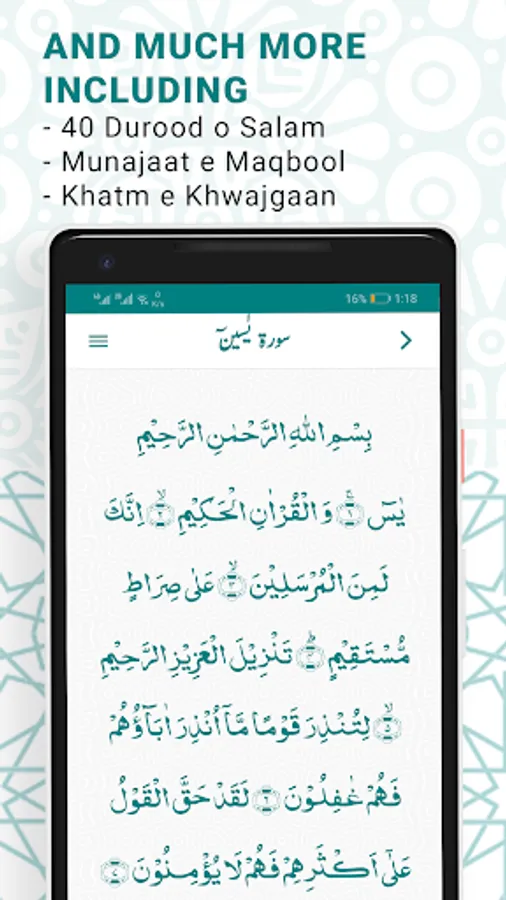 AND MUCH MORE
INCLUDING
- 40 Durood o Salam
- Munajaat e Maqbool
- Khatm e Khwajgaan
16% 1:18
سورة يٰسين
بِسْمِ اللهِ الرَّحْمٰنِ الرَّحِيْمِ
يٰسٓ ۚ﴿۱﴾ وَ الْقُرْاٰنِ الْحَكِيْمِ ۙ﴿۲﴾ اِنَّكَ
لَمِنَ الْمُرْسَلِيْنَ ۙ﴿۳﴾ عَلٰى صِرَاطٍ
مُّسْتَقِيْمٍ ؕ﴿۴﴾ تَنْزِيْلَ الْعَزِيْزِ الرَّحِيْمِ
ۙ﴿۵﴾ لِتُنْذِرَ قَوْمًا مَّاۤ اُنْذِرَ اٰبَآؤُهُمْ
فَهُمْ غٰفِلُوْنَ ﴿۶﴾ لَقَدْ حَقَّ الْقَوْلُ
عَلٰۤى اَكْثَرِهِمْ فَهُمْ لَا يُؤْمِنُوْنَ ﴿۷﴾